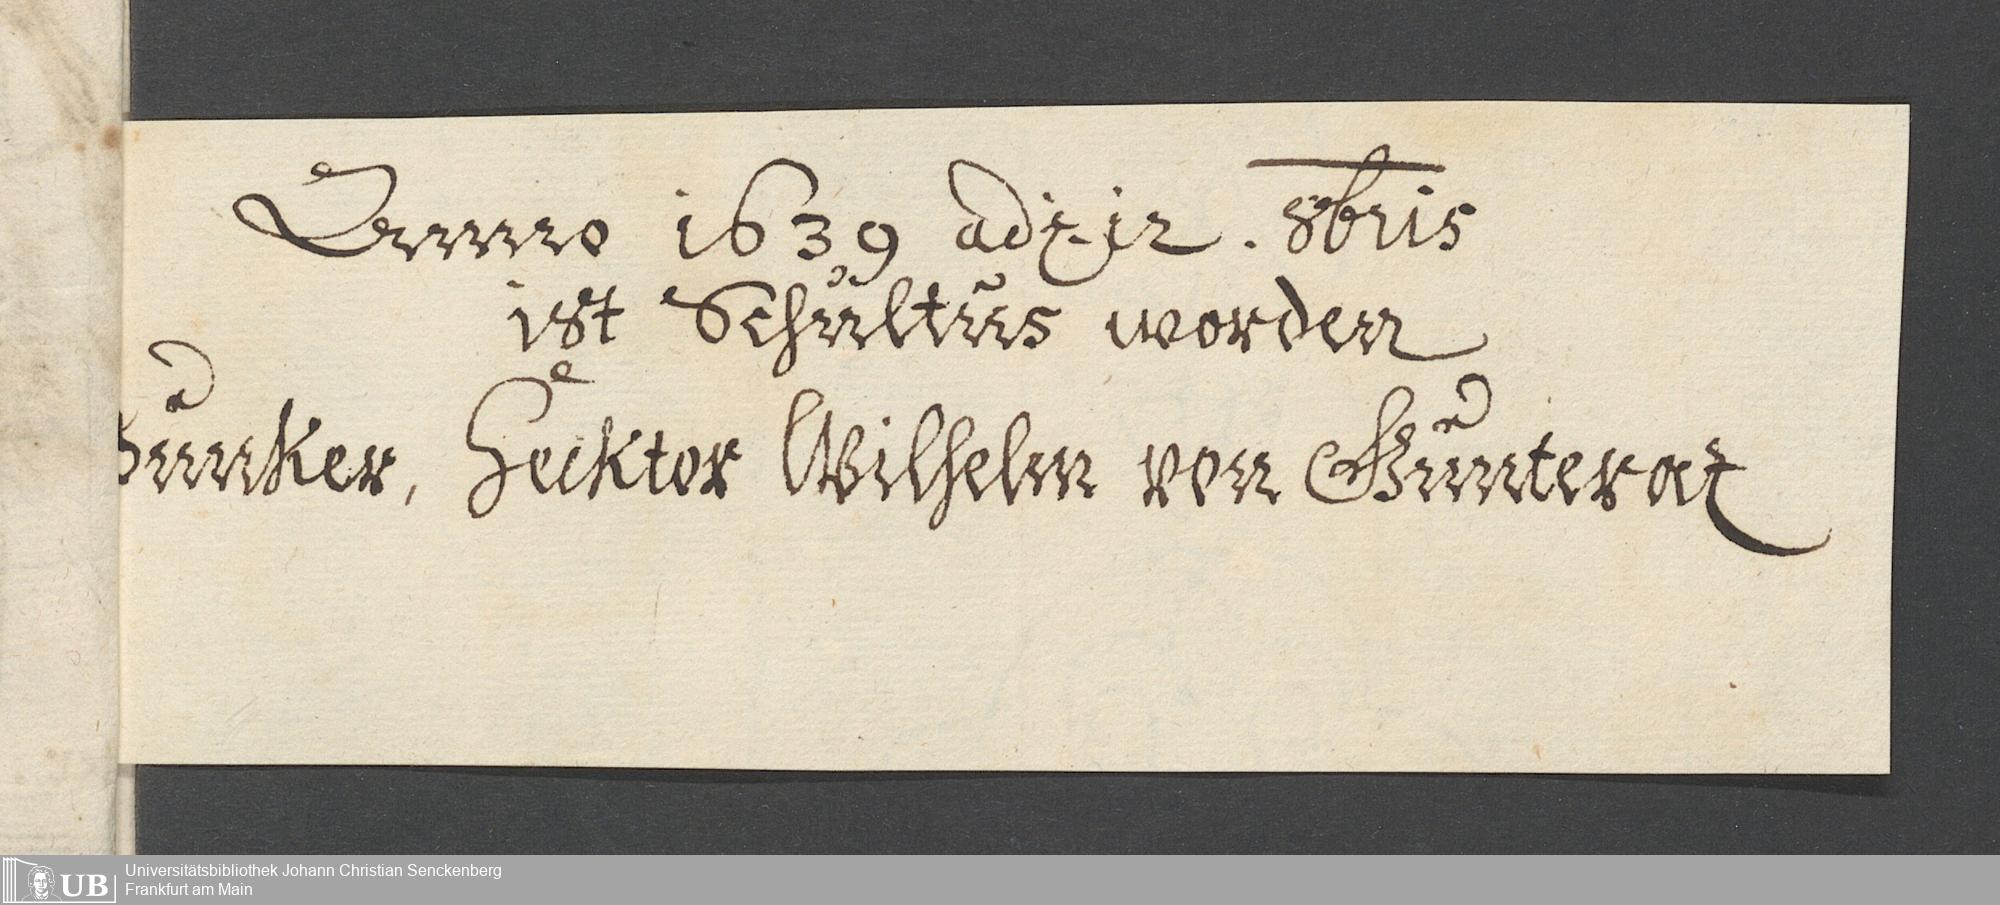 Anno 1639 adj. 12. 8bris
ist Schültüs worden
Jünker, Hecktor Wilhelm von Günterat
UB Universitätsbibliothek Johann Christian Senckenberg
Frankfurt am Main